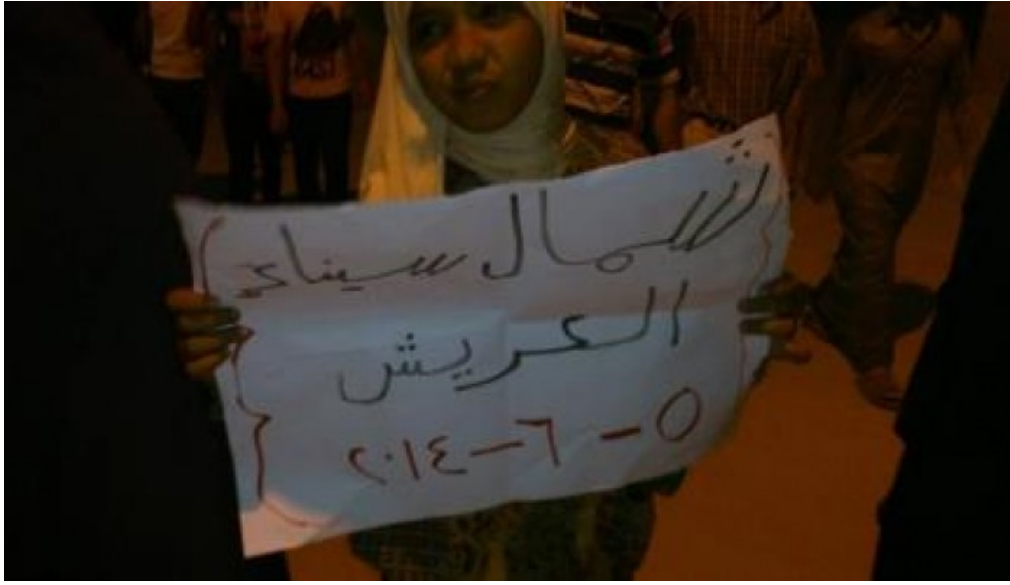 شمال سيناء
العريش
٥-٦-٢٠١٤